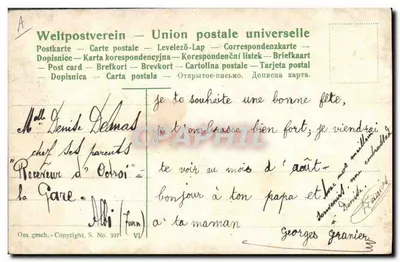 A
Weltpostverein – Union postale universelle
Postkarte - Carte postale - Levelező-Lap - Correspondenzkarte
Dopisnice - Karta korespondencyjna - Korespondenční lístek - Briefkaart
Post card - Brefkort - Brevkort - Cartolina postale - Tarjeta postal
Dopisnica - Carta postala - Открытое-письмо. Дописна карта.
Melle Denise Delmas
chez ses parents
"Receveur d'Octroi" à
la Gare"
Albi (Tarn)
je te souhaite une bonne fête,
je t'embrasse bien fort, je viendrai
te voir au mois d'août
bonjour à ton papa et
à ta maman
Georges Granier
nos meilleurs
souvenirs
Denise
Oes. gesch. - Copyright. S. No. 107 VI